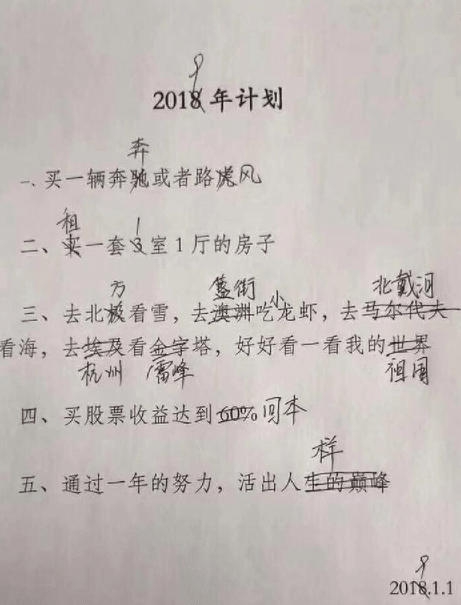 9
2018年计划
奔
一、买一辆奔驰或者路虎风
租 1
二、买一套3室1厅的房子
方 簋街 小 北戴河
三、去北极看雪，去澳洲吃龙虾，去马尔代夫
看海，去埃及看金字塔，好好看一看我的世界
杭州 雷峰 祖国
四、买股票收益达到60%回本
样
五、通过一年的努力，活出人生的巅峰
9
2018.1.1